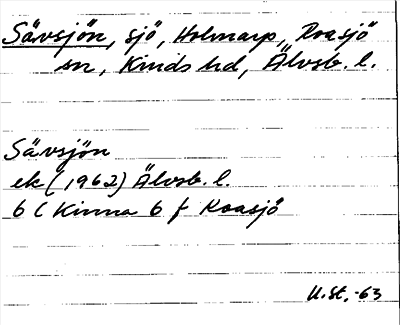 Sävsjön, sjö, Holmarp, Roasjö
sn, Kinds hd, Älvsb. l.
Sävsjön
ek (1962) Älvsb. l.
6 C Kinna 6 f Roasjö
U.St. -63